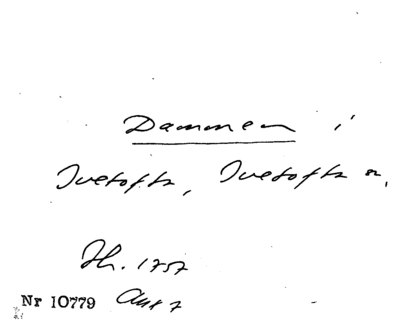 Dammen i
Ivetofta, Ivetofta sn.
Th. 1757
Nr 10779 Akt 7